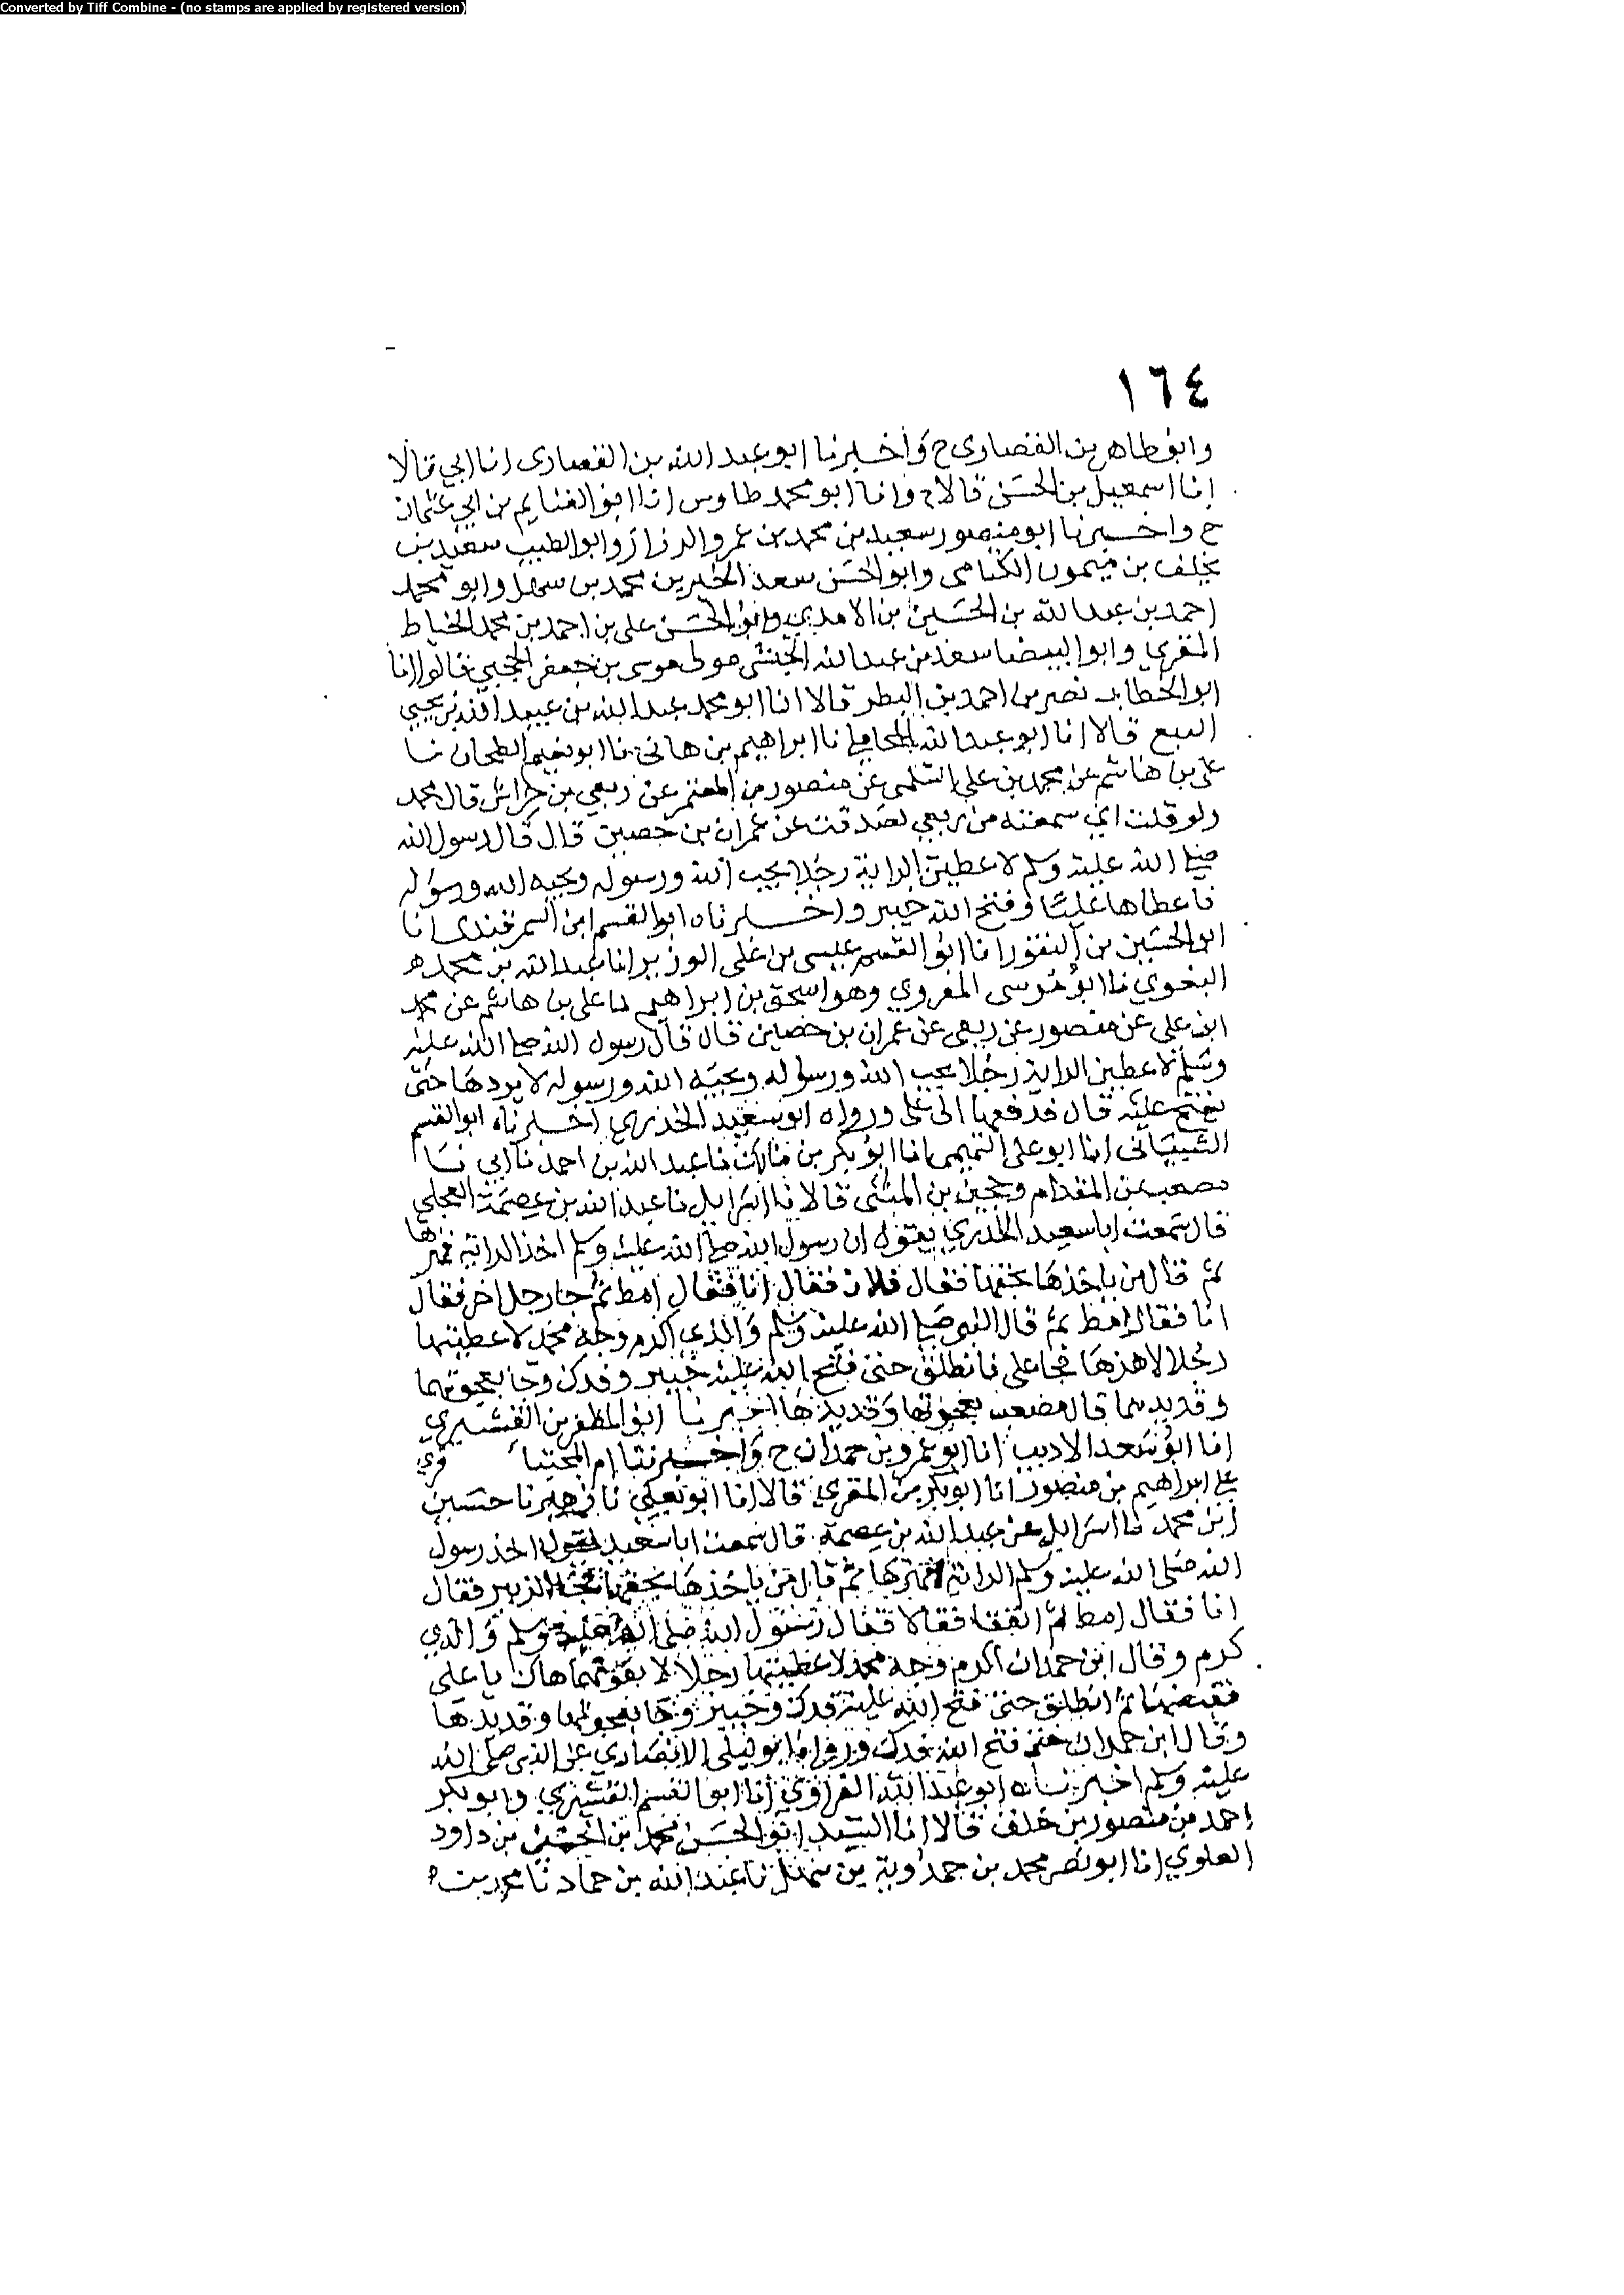 Converted by Tiff Combine - (no stamps are applied by registered version)
١٦٤
وابو طاهر بن القصاري ح واخبرنا ابو عبد الله بن القصارى انا ابي قالا
انا اسمعيل بن الحسن قالا ح وانا ابو محمد طاوس انا ابو الغنايم بن ابي عثمان
ح واخبرنا ابو منصور سعيد بن محمد بن عمر والرزاز وابو الطيب سعيد بن
يخلف بن ميمون الكتامى وابو الحسن سعد الخير بن محمد بن سهل وابو محمد
احمد بن عبد الله بن الحسين بن الامدي وابو الحسن على بن احمد بن محمد الخياط
المقري وابو البيضا سعد بن عبد الله الحبشى مولى موسى بن جعفر الحجبي قالوا انا
ابو الخطاب نصر بن احمد بن البطر قالا انا ابو محمد عبد الله بن عبيد الله بن يحيى
البيع قالا انا ابو عبد الله المحاملي نا ابراهيم بن هانئ نا ابو نعيم الطحان نا
على بن هاشم عن محمد بن علي السلمى عن منصور بن المعتمر عن ربعي بن حراش قال محمد
ولو قلت اني سمعته من ربعي لصدقت عن عمران بن حصين قال قال رسول الله
صلى الله عليه وسلم لاعطين الراية رجلا يحب الله ورسوله ويحبه الله ورسوله
فاعطاها عليا وفتح الله خيبر واخبرناه ابو القسم ابن السمرقندى انا
ابو الحسين بن النقور انا ابو القسم عيسى بن على الوزير انا عبد الله بن محمد
البغوي نا ابو موسى الهروي وهو اسحق بن ابراهيم نا على بن هاشم عن محمد
ابن على عن منصور عن ربعى عن عمران بن حصين قال قال رسول الله صلى الله عليه
وسلم لاعطين الراية رجلا يحب الله ورسوله ويحبه الله ورسوله لا يردها حتى
يفتح عليه قال فدفعها الى على ورواه ابو سعيد الخدري اخبرناه ابو القسم
الشيبانى انا ابو على التميمى انا ابو بكر بن مالك نا عبد الله بن احمد نا ابي نا
مصعب بن المقدام وحجين بن المثنى قالا نا اسرايل نا عبد الله بن عصمة العجلي
قال سمعت ابا سعيد الخدري يقول ان رسول الله صلى الله عليه وسلم اخذ الراية فهزها
ثم قال من ياخذها بحقها فقال فلان فقال انا فقال امط ثم جا رجل اخر فقال
انا فقال امط ثم قال النبي صلى الله عليه وسلم والذي اكرم وجه محمد لاعطينها
رجلا لا فرها فجا على فانطلق حتى فتح الله عليه خيبر وفدك وجا بعجوتهما
وقديدهما قال مصعب بعجوتها وقديدها اخبرنا ابو المظفر بن القشيري
انا ابو سعد الاديب انا ابو عمرو بن حمدان ح واخبرتنا ام المجتبا قري
على ابراهيم بن منصور انا ابو بكر بن المقري قالا انا ابو يعلى نا زهير نا حسين
ابن محمد نا اسرايل عن عبد الله بن عصمة قال سمعت ابا سعيد يقول اخذ رسول
الله صلى الله عليه وسلم الراية فهزها ثم قال من ياخذها بحقها فجا الزبير فقال
انا فقال امط ثم فقال رسول الله صلى الله عليه وسلم والذي
كرم وقال ابن حمدان اكرم وجه محمد لاعطينها رجلا لا هاك يا على
فقبضها ثم انطلق حتى فتح الله عليه فدك وخيبر وجا بعجوتها وقديدها
وقال ابن حمدان حتى فتح الله فدك ورواه ابو ليلى الانصاري عن النبي صلى الله
عليه وسلم اخبرناه ابو عبد الله الفراوي انا ابو القسم القشيري وابو بكر
احمد بن منصور بن خلف قالا انا السيد ابو الحسن محمد بن الحسين بن داود
العلوي انا ابو نصر محمد بن حمدويه بن سهل نا عبد الله بن حماد نا